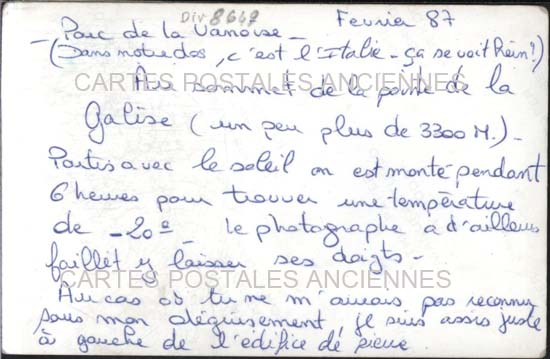 Div 8647
Fevrier 87
- Parc de la Vanoise -
(Dans notre dos, c'est l'Italie - ça se voit hein!)
CARTES POSTALES ANCIENNES
Au sommet de la pointe de la
Galise (un peu plus de 3300 M.) -
Partis avec le soleil on est monté pendant
6 heures pour trouver une température
de -20° le photographe a d'ailleurs
faillet y laisser ses doigts -
CARTES POSTALES ANCIENNES
Au cas où tu ne m'aurais pas reconnu
sous mon déguisement, je suis assis juste
à gauche de l'édifice de pierre